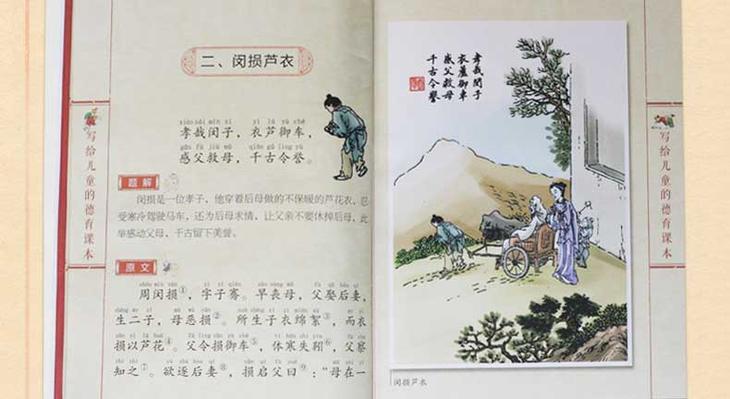 二、闵损芦衣
xiào zāi mǐn zǐ yī lú yù chē
孝哉闵子，衣芦御车，
gǎn fù jiù mǔ qiān gǔ lìng yù
感父救母，千古令誉。
题解
闵损是一位孝子，他穿着后母做的不保暖的芦花衣，忍
受寒冷驾驶马车，还为后母求情，让父亲不要休掉后母，此
举感动父母，千古留下美誉。
原文
周闵损①，字子骞。早丧母，父娶后妻，
生二子，母恶损②。所生子衣绵絮③，而衣
损以芦花④。父令损御车⑤，体寒失靷⑥，父察
知之⑦。欲逐后妻⑧，损启父曰⑨：“母在一
写给儿童的德育课本
孝哉闵子
衣蘆御车
感父救母
千古令誉
闵损芦衣
写给儿童的德育课本